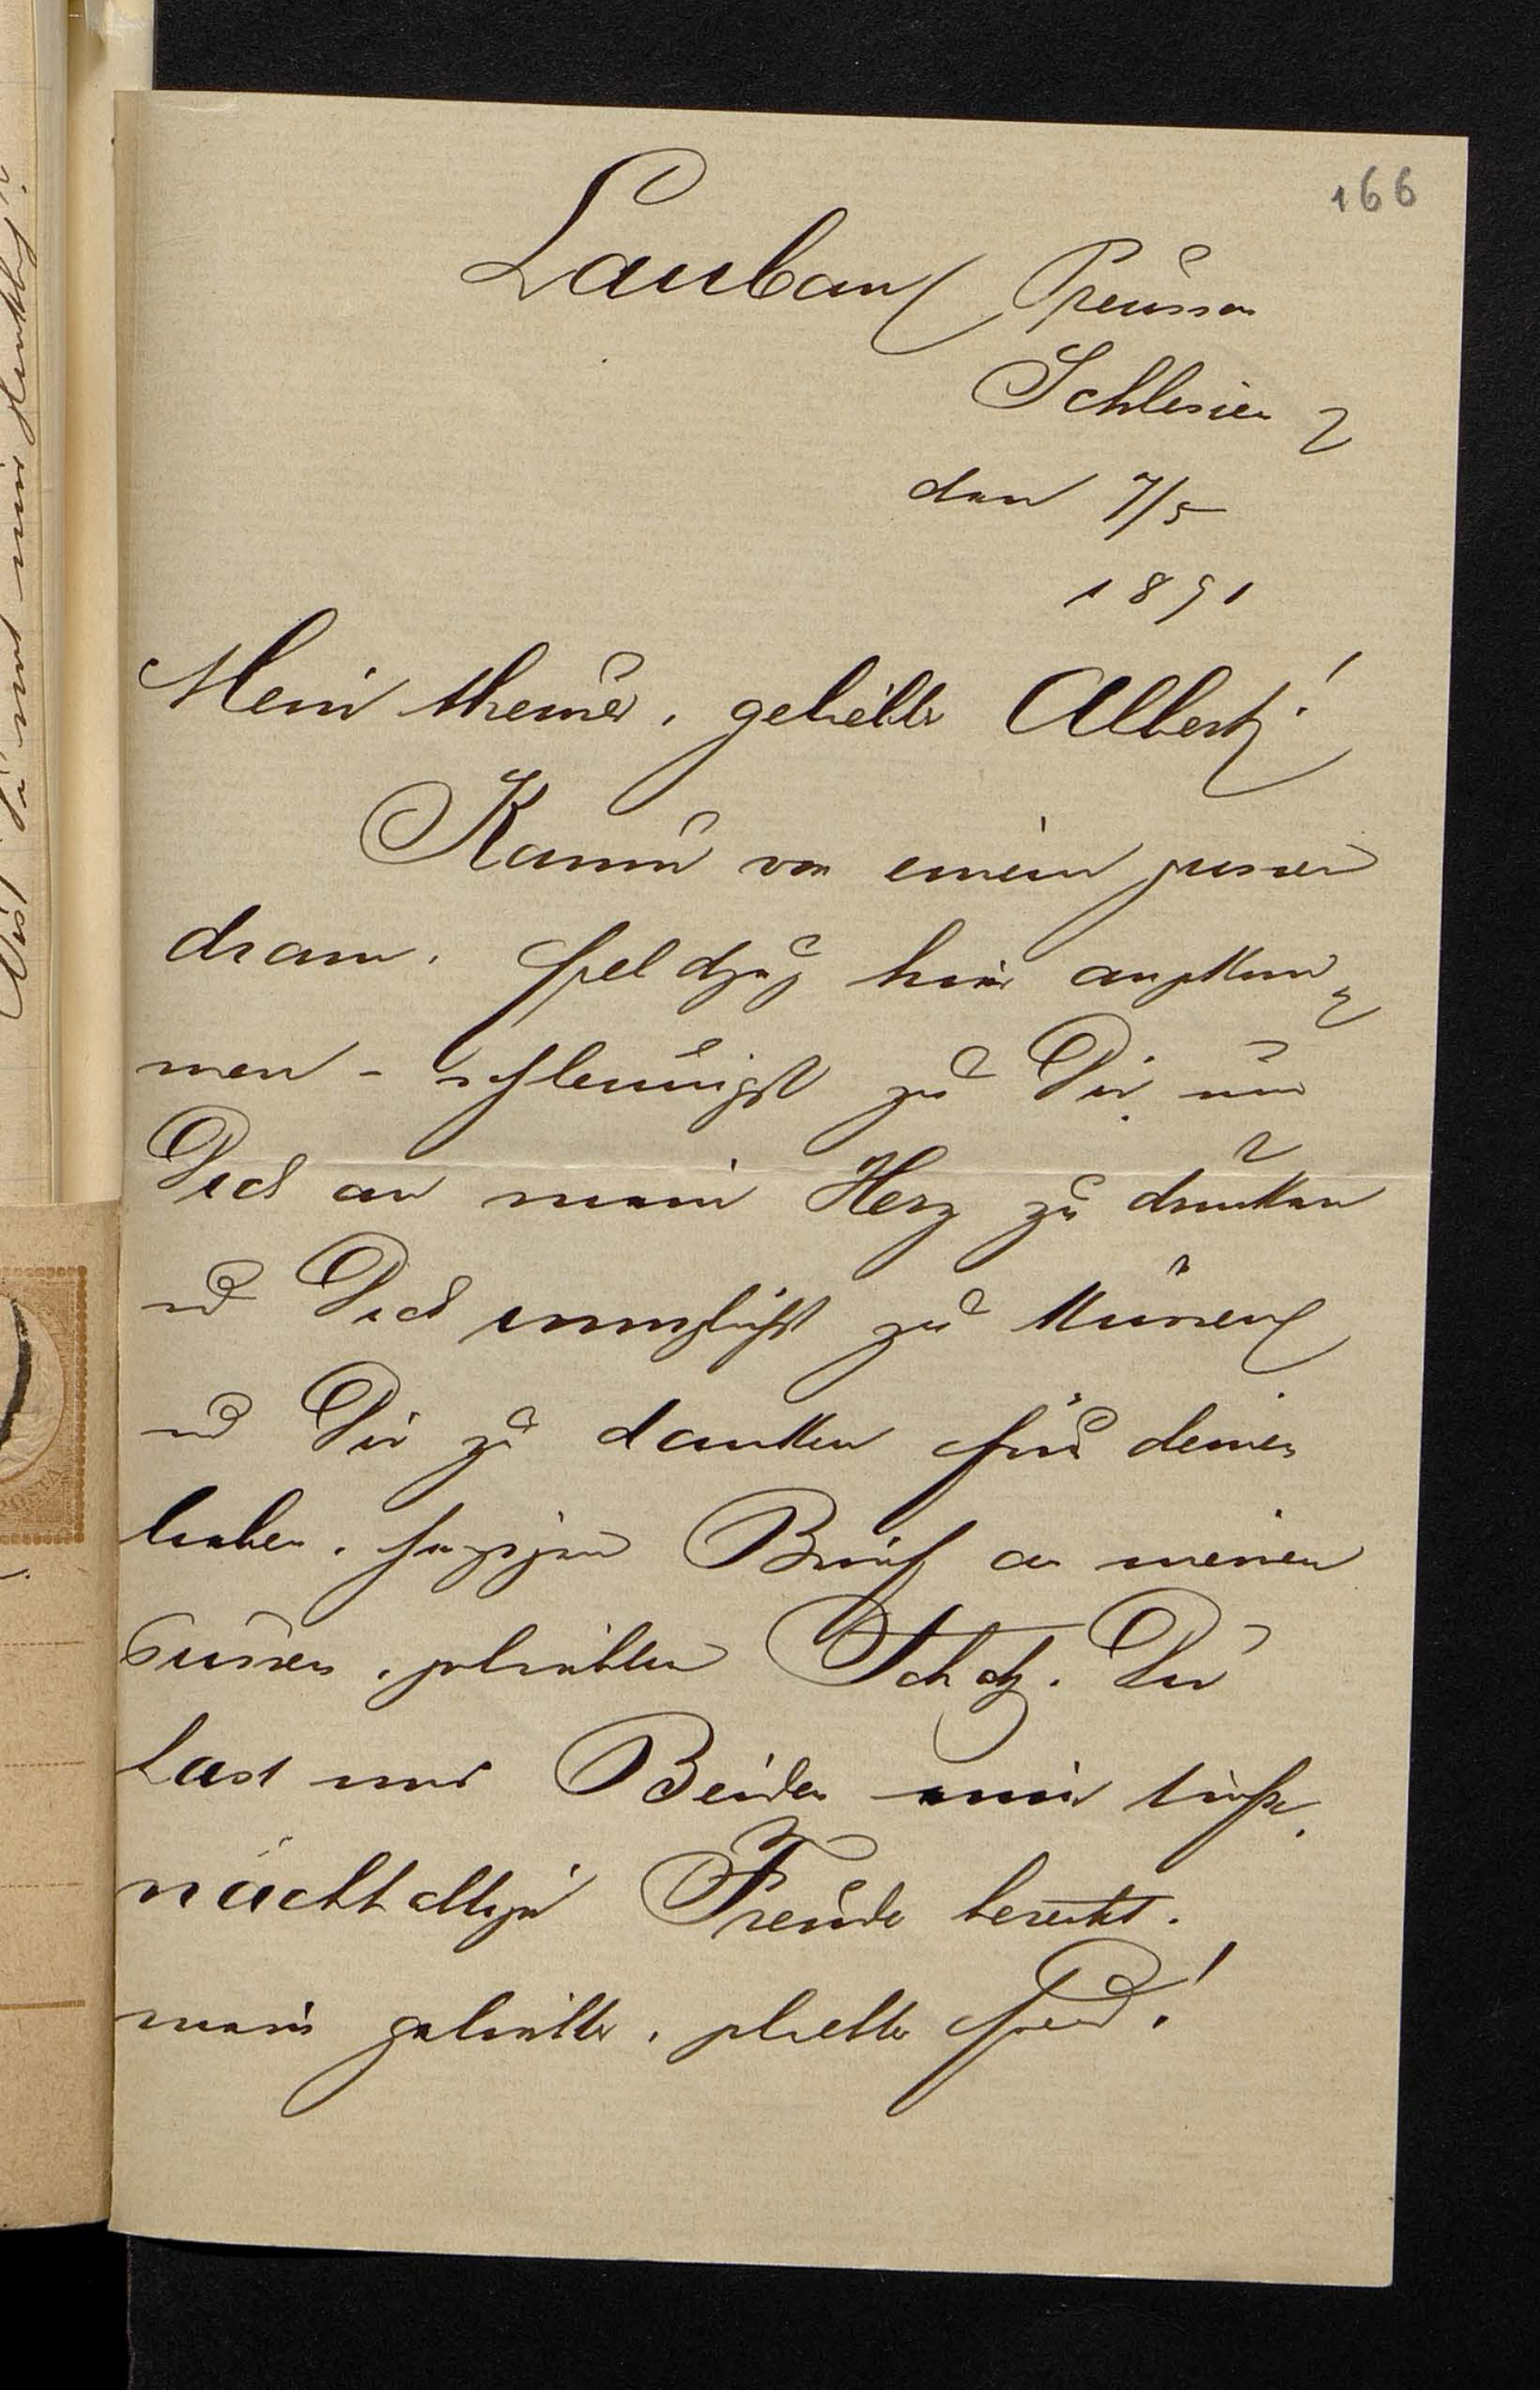 166
Lauban Preussen
Schlesien
den 7/5
1891
Mein theurer, geliebter Albert!
Kaum von einem grossen
dram. Feldzug hier angekom=
men - schleunigst zu Dir um
Dich an mein Herz zu drücken
und Dich innigst zu küssen
und Dir zu danken für deinen
lieben, herzigen Brief an meinen
süssen, geliebten Schatz. Du
hast uns Beiden eine tiefe,
nachhaltige Freude bereitet.
mein geliebter, geliebter Freund!